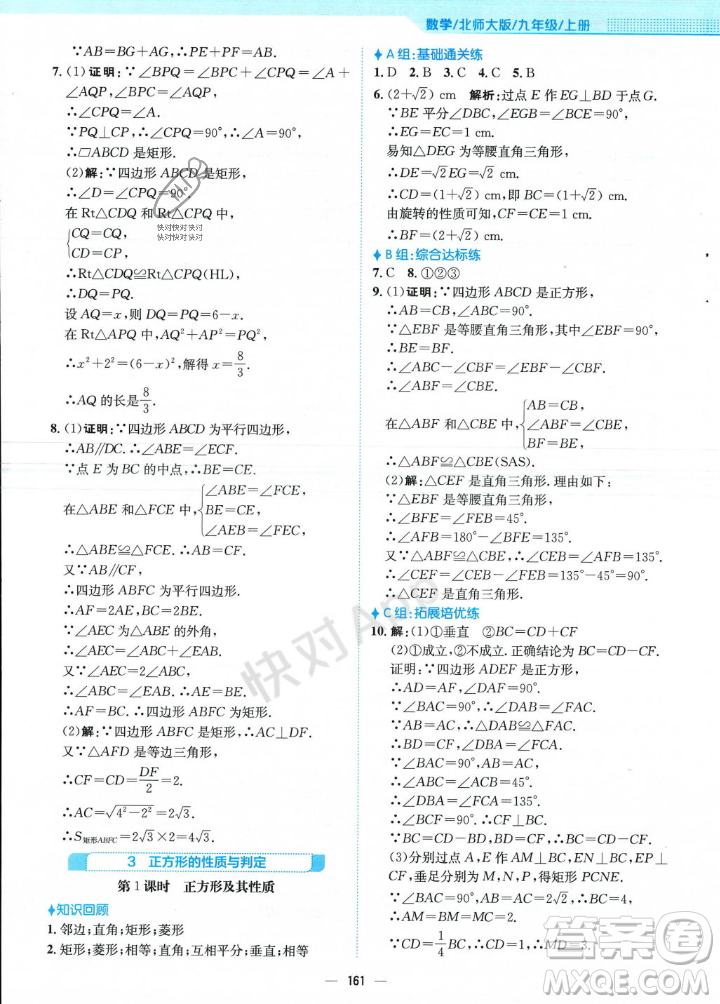 数学/北师大版/九年级/上册
∵AB=BG,∴AG=AP.
7.(1)证明:∵∠BPQ=∠BPC+∠CPQ=∠A+
∠AQP,∠BPC=∠AQP,
∴∠CPQ=∠A.
∵PQ⊥CP,∴∠A=∠CPQ=90°,
∴▱ABCD是矩形.
(2)解:∵四边形ABCD是矩形,
∴∠D=∠CPQ=90°.
在Rt△CDQ和Rt△CPQ中,
{CQ=CQ,
CD=CP,
∴Rt△CDQ≌Rt△CPQ(HL),
∴DQ=PQ.
设AQ=x,则DQ=PQ=6-x.
在Rt△APQ中,AQ²+AP²=PQ²,
∴x²+2²=(6-x)²,解得x=8/3.
∴AQ的长是8/3.
8.(1)证明:∵四边形ABCD为平行四边形,
∴AB∥DC.∴∠ABE=∠ECF.
∵点E为BC的中点,∴BE=CE.
在△ABE和△FCE中,{∠ABE=∠FCE,
BE=CE,
∠AEB=∠FEC,
∴△ABE≌△FCE.∴AB=CF.
又∵AB∥CF,
∴四边形ABFC为平行四边形,
∴AF=2AE,BC=2BE.
∵∠AEC为△ABE的外角,
∴∠AEC=∠ABC+∠EAB.
又∵∠AEC=2∠ABC,
∴∠ABC=∠EAB,∴AE=BE,
∴AF=BC.∴四边形ABFC是矩形.
(2)解:∵四边形ABFC是矩形,∴AC⊥DF.
又∵△AFD是等边三角形,
∴CF=CD=DF/2=2.
∴AC=√(4²-2²)=2√3.
∴S矩形ABFC=2√3×2=4√3.
3 正方形的性质与判定
第1课时 正方形及其性质
知识回顾
1.邻边;直角;矩形;菱形
2.矩形;菱形;相等;直角;互相平分;垂直;相等
A组:基础通关练
1.D 2.B 3.C 4.C 5.C
6.(2+√2) cm 解析:过点E作EG⊥BD于点G.
∵BE平分∠DBC,∠EGB=∠BCE=90°,
∴EG=EC=1 cm.
易知△DEG为等腰直角三角形,
∴DE=√2EG=√2 cm.
∴CD=(1+√2) cm,即BC=(1+√2) cm.
由旋转的性质可知,CF=CE=1 cm.
∴BF=(2+√2) cm.
B组:综合达标练
7.C 8.①②③
9.(1)证明:∵四边形ABCD是正方形,
∴AB=CB,∠ABC=90°.
∵△EBF是等腰直角三角形,∠EBF=90°,
∴BE=BF.
∴∠ABC-∠CBF=∠EBF-∠CBF.
∴∠ABF=∠CBE.
在△ABF和△CBE中,{AB=CB,
∠ABF=∠CBE,
BF=BE,
∴△ABF≌△CBE(SAS).
(2)解:△CEF是直角三角形.理由如下:
∵△EBF是等腰直角三角形,
∴∠BFE=∠FEB=45°.
∴∠AFB=180°-∠BFE=135°.
又∵△ABF≌△CBE,
∴∠CEB=∠AFB=135°.
∴∠CEF=∠CEB-∠FEB=135°-45°=90°.
∴△CEF是直角三角形.
C组:拓展培优练
10.解:(1)①垂直 ②BC=CD+CF
(2)①成立,②不成立.正确结论为BC=CD-CF.
证明:∵四边形ADEF是正方形,
∴AD=AF,∠DAF=90°.
∵∠BAC=90°,∴∠DAB=∠FAC.
又∵AB=AC,
∴△DAB≌△FAC.
∴∠ABD=∠ACF,DB=CF.
∵∠BAC=90°,AB=AC,
∴∠ACB=∠ABC=45°.
∴∠DBA=135°.∴∠ACF=135°.
∴∠BCF=∠ACF-∠ACB=90°.
∴CF⊥BC.
∵BC=CD-DB,∴BC=CD-CF.
(3)分别过点A,E作AM⊥BD,EN⊥BD,垂足
分别为M,N,EN交CF于点P,得矩形PCNE.
∵∠BAC=90°,AB=AC=2√2,
∴BC=4.
∴AM=BM=CM=2.
∵CD=1/4BC=1,∴MD=CM+CD=3.
161
快对快对快对
快对快对快对
快对App